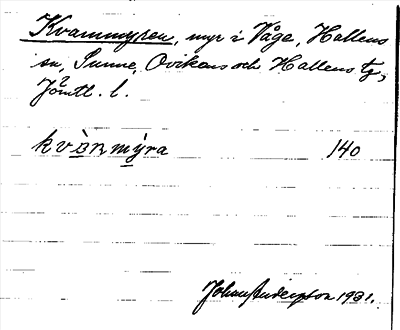 Kvarnmyren, myr i Våge, Hallens
sn, Sunne, Ovikens och Hallens tg,
Jämtl. l.
kvànmýra 140
John Anderzson 1931.